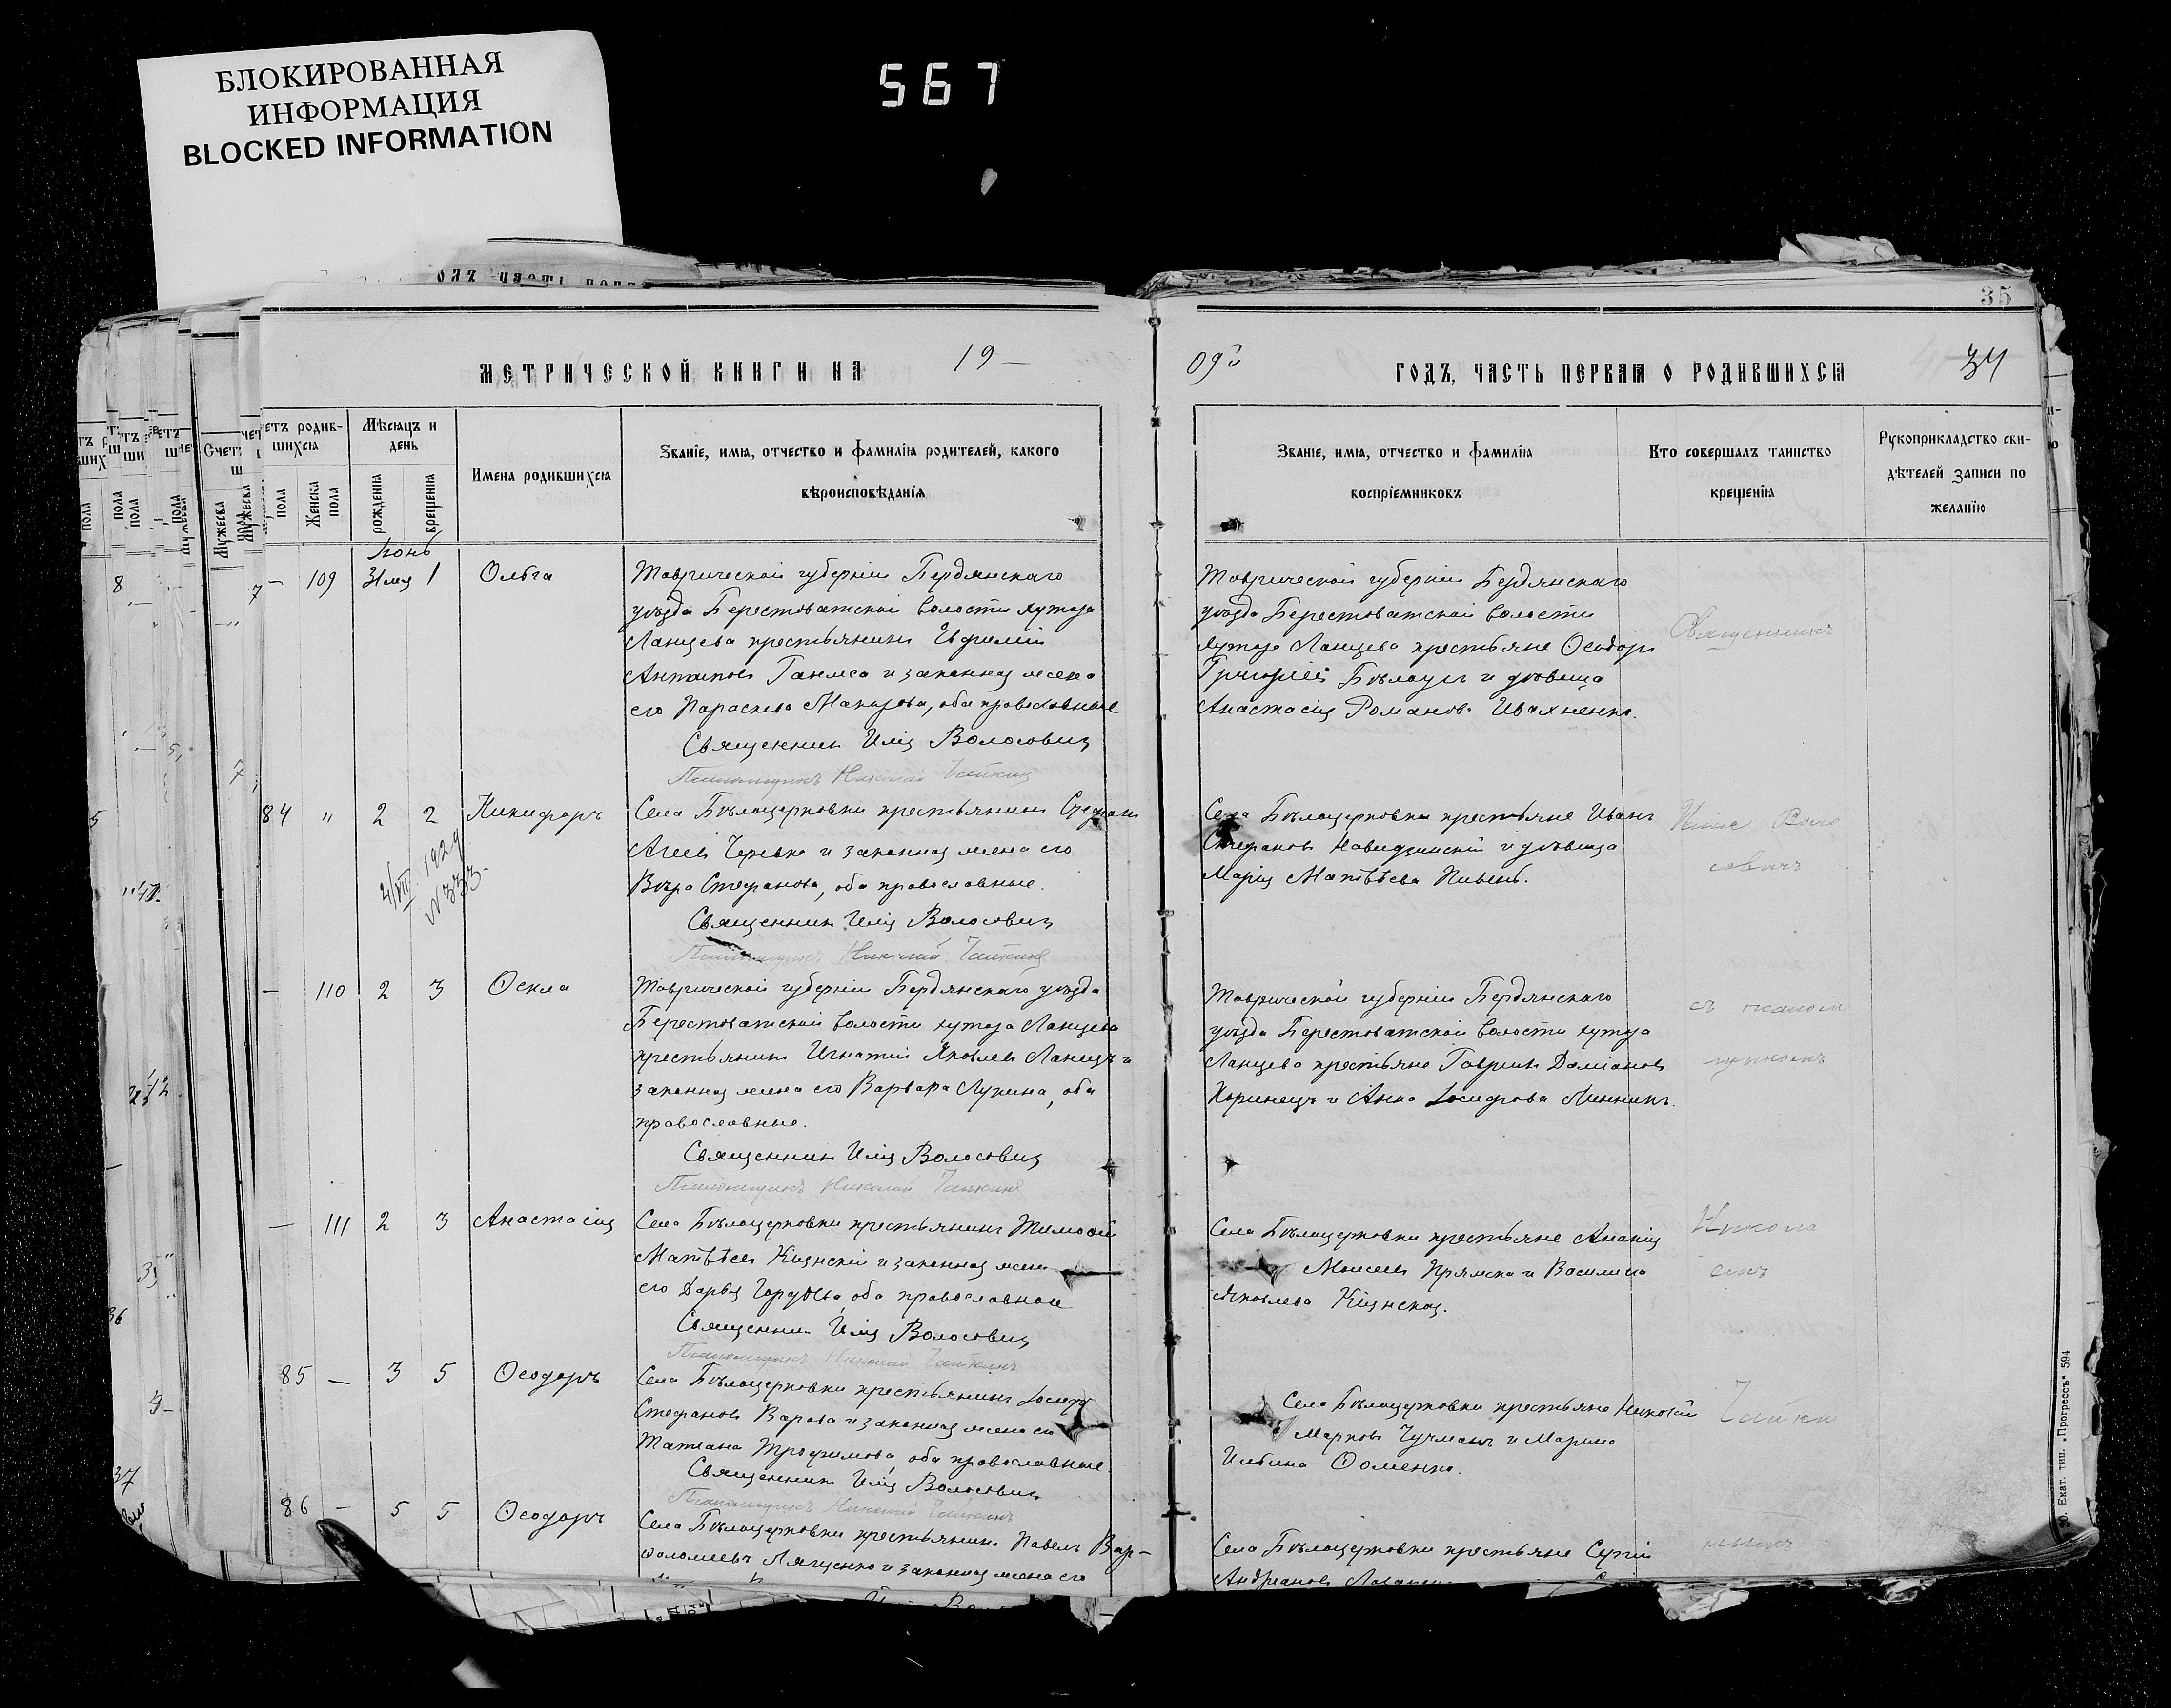 БЛОКИРОВАННАЯ
ИНФОРМАЦИЯ
BLOCKED INFORMATION
567
35
МЕТРИЧЕСКОЙ КНИГИ НА 19—
09й ГОДЪ, ЧАСТЬ ПЕРВАЯ О РОДИВШИХСЯ 34
Счетъ родившихся
Женска пола
Мѣсяцъ и день
рожденія
крещенія
Имена родившихся
Званіе, имя, отчество и фамилія родителей, какого
вѣроисповѣданія
Званіе, имя, отчество и фамилія
воспріемниковъ
Кто совершалъ таинство
крещенія
Рукоприкладство сви-
дѣтелей записи по
желанію
Іюнь
— 109 31 мая 1 Ольга
Таврической губерніи Бердянскаго
уѣзда Берестоватской волости хутора
Ланцева крестьянинъ
и законная жена
его Параскева Макарова, оба православные
Священникъ Илія Волосовичъ
Псаломщикъ Николай Чайкинъ
Таврической губерніи Бердянскаго
уѣзда Берестоватской волости
хутора Ланцева крестьяне Ѳеодоръ
Григоріевъ Бѣлоусъ и дѣвица
Анастасія Романова Ивахненко.
84 " 2 2 Никифоръ
2/VIII 1929
N 333
Села Бѣлоцерковки крестьянинъ Стефанъ
и законная жена его
Вѣра Стефанова, оба православные.
Священникъ Илія Волосовичъ
Псаломщикъ Николай Чайкинъ
Села Бѣлоцерковки крестьяне Иванъ
Стефановъ и дѣвица
Марія Матвѣева Пивень.
— 110 2 3 Ѳекла
Таврической губерніи Бердянскаго уѣзда
Берестоватской волости хутора Ланцева
крестьянинъ Игнатій Яковлевъ Ланецъ и
законная жена его Варвара Лукина, оба
православные.
Священникъ Илія Волосовичъ
Псаломщикъ Николай Чайкинъ
Таврической губерніи Бердянскаго
уѣзда Берестоватской волости хутора
Ланцева крестьяне Гавріилъ Даміановъ
Коринецъ и Анна Іосифова Линникъ.
— 111 2 3 Анастасія
Села Бѣлоцерковки крестьянинъ Тимоѳей
Матвѣевъ Кіянскій и законная жена
его Дарья оба православные
Священникъ Илія Волосовичъ
Псаломщикъ Николай Чайкинъ
Села Бѣлоцерковки крестьяне Ананія
Моисеевъ Прямка и Василиса
Яковлева Кіянская.
85 — 3 5 Ѳеодоръ
Села Бѣлоцерковки крестьянинъ Іосифъ
Стефановъ Варава и законная жена его
Татіана Трофимова, оба православные.
Священникъ Илія Волосовичъ
Псаломщикъ Николай Чайкинъ
Села Бѣлоцерковки крестьяне Николай
Марковъ Чучманъ и Марина
Ильина Ѳоменко.
86 — 5 5 Ѳеодоръ
Села Бѣлоцерковки крестьянинъ Павелъ Вар-
ѳоломеевъ Лященко и законная жена его
Села Бѣлоцерковки крестьяне Сергій
Андреановъ
Священникъ
Илія Воло
совичъ
съ псалом
щикомъ
Никола
емъ
Чайки
нымъ
20. Екат. тип. „Прогрессъ“ 594